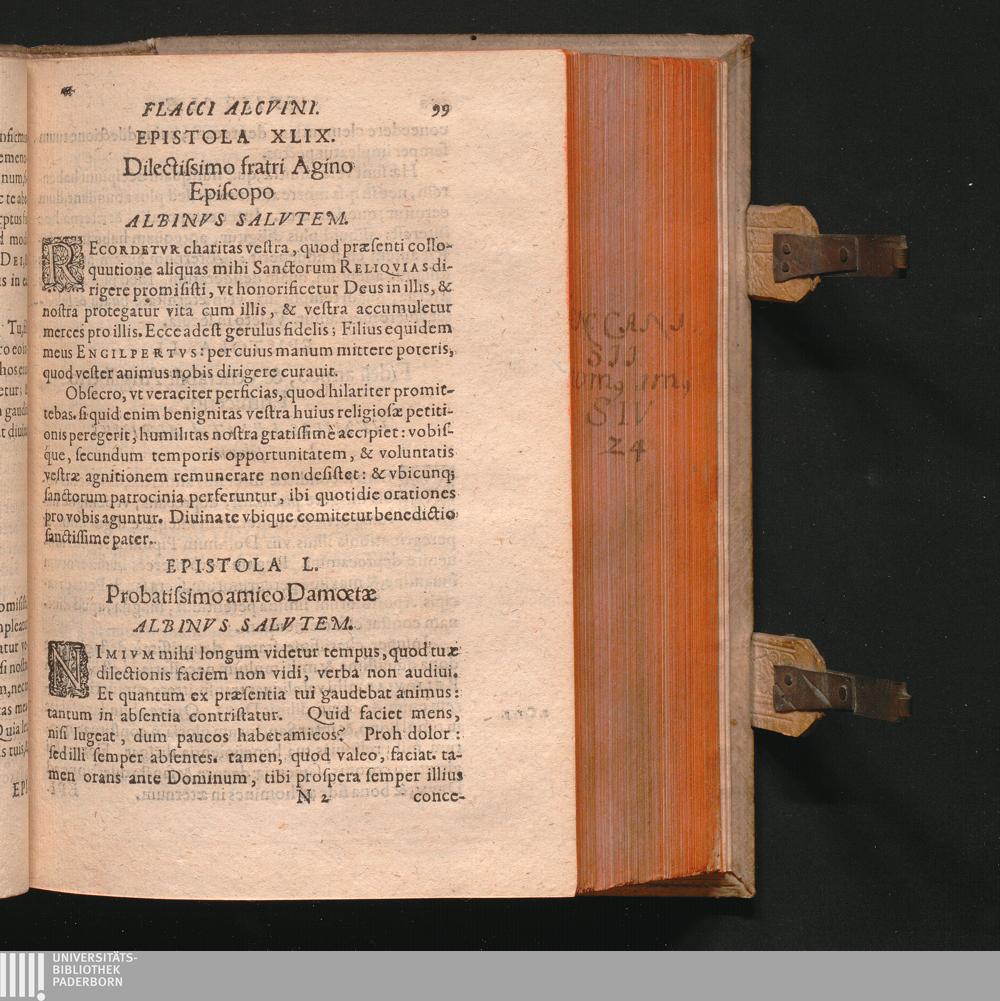 FLACCI ALCVINI. 99
EPISTOLA XLIX.
Dilectiſsimo fratri Agino
Epiſcopo
ALBINVS SALVTEM.
RECORDETVR charitas veſtra, quod præſenti collo-
quutione aliquas mihi Sanctorum RELIQVIAS di-
rigere promiſiſti, vt honorificetur Deus in illis, &
noſtra protegatur vita cum illis, & veſtra accumuletur
merces pro illis. Ecce adeſt gerulus fidelis; Filius equidem
meus ENGILPERTVS: per cuius manum mittere poteris,
quod veſter animus nobis dirigere curauit.
Obſecro, vt veraciter perficias, quod hilariter promit-
tebas. ſi quid enim benignitas veſtra huius religioſæ petiti-
onis peregerit, humilitas noſtra gratiſſimè accipiet: vobiſ-
q́ue, ſecundum temporis opportunitatem, & voluntatis
veſtræ agnitionem remunerare non deſiſtet: & vbicunq;
ſanctorum patrocinia perferuntur, ibi quotidie orationes
pro vobis aguntur. Diuina te vbique comitetur benedictio
ſanctiſſime pater.
EPISTOLA L.
Probatiſsimo amico Damœtæ
ALBINVS SALVTEM.
NIMIVM mihi longum videtur tempus, quod tuæ
dilectionis faciem non vidi, verba non audiui.
Et quantum ex præſentia tui gaudebat animus:
tantum in abſentia contriſtatur. Quid faciet mens,
niſi lugeat, dum paucos habet amicos? Proh dolor:
ſed illi ſemper abſentes. tamen, quod valeo, faciat. ta-
men orans ante Dominum, tibi proſpera ſemper illius
N 2 conce-
SIV
24
UNIVERSITÄTS-
BIBLIOTHEK
PADERBORN